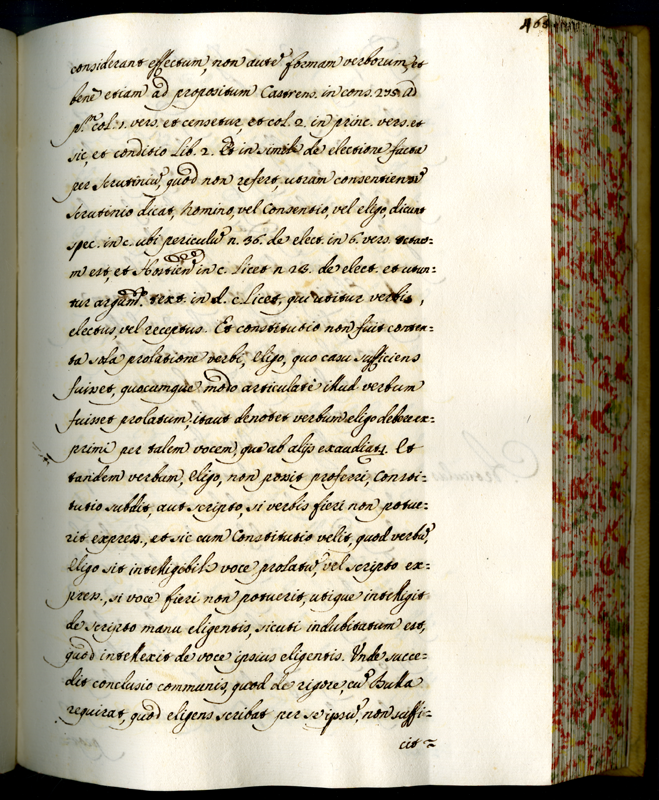 considerant effectum, non autē formam verborum, et
benè etiam ad propositum Castrens. in cons. 275. ad
pm. col. 1. vers. et censetur, et col. 2. in princ. vers. et
sic, et conditio Lib. 2. Et in simile de electione facta
per Scrutiniū, quod non refert, utram consentiens
Scrutinio dicat, Nomino, vel Consentio, vel eligo, dicunt
spec. in c. ubi periculū n. 36. de elect. in 6. vers.
m est, et Hostien in c. Licet n 23. de elect. et utun=
tur argum. text. in d. c. Licet, qui utitur verbis,
electus, vel receptus. Et constitutio non fuit conten=
ta sola prolatione verbi, Eligo, quo casu sufficiens
fuisset, quocumque modo articulatè illud verbum
fuisset prolatum, itaut denotet verbum eligo debere ex=
primi per talem vocem, quæ ab alijs exaudiat. Et
tandem verbum, Eligo, non possit proferri, Consti=
tutio subdit, aut scripto, si verbis fieri non potue=
rit express., et sic cum Constitutio velit, quod verbū,
Eligo sit intelligibili voce prolatū, vel scripto ex=
press., si voce fieri non potuerit, utique intelligit
de scripto manu eligentis, sicuti indubitatum est,
quod intellexit de voce ipsius eligentis. Unde succe=
dit conclusio communis, quod de rigore, cū Bulla
requirat, quod eligens scribat per se ipsū, non suffi=
cit